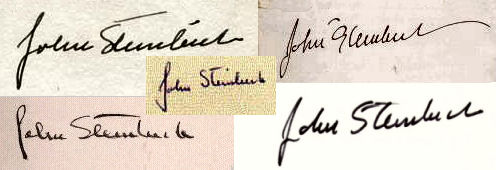 John Steinbeck
John Steinbeck
John Steinbeck
John Steinbeck
John Steinbeck